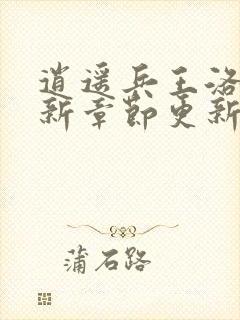 逍遥兵王洛
新章节更新
蒲石路